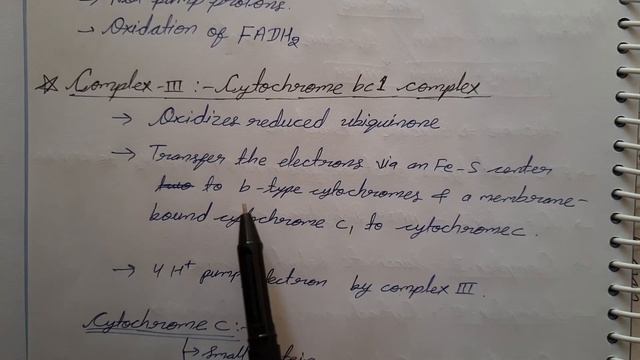 → Not pump protons.
→ Oxidation of FADH2
☆ Complex-III :- Cytochrome bc1 complex
→ Oxidizes reduced ubiquinone
→ Transfer the electrons via an Fe-S center
to b-type cytochromes & a membrane-
bound cytochrome c1 to cytochrome c.
→ 4 H+ pump electron by complex III.
Cytochrome c :-
↳ Small